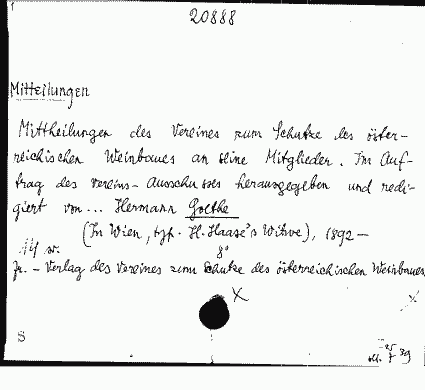 20888
Mitteilungen
Mittheilungen des Vereines zum Schutze des öster-
reichischen Weinbaues an seine Mitglieder. Im Auf-
trag des Vereins-Ausschusses herausgegeben und redi-
giert von... Hermann Goethe
(In Wien, typ. H. Haase's Witwe), 1892 –
8°
Verlag des Vereines zum Schutze des österreichischen Weinbaues
X
S